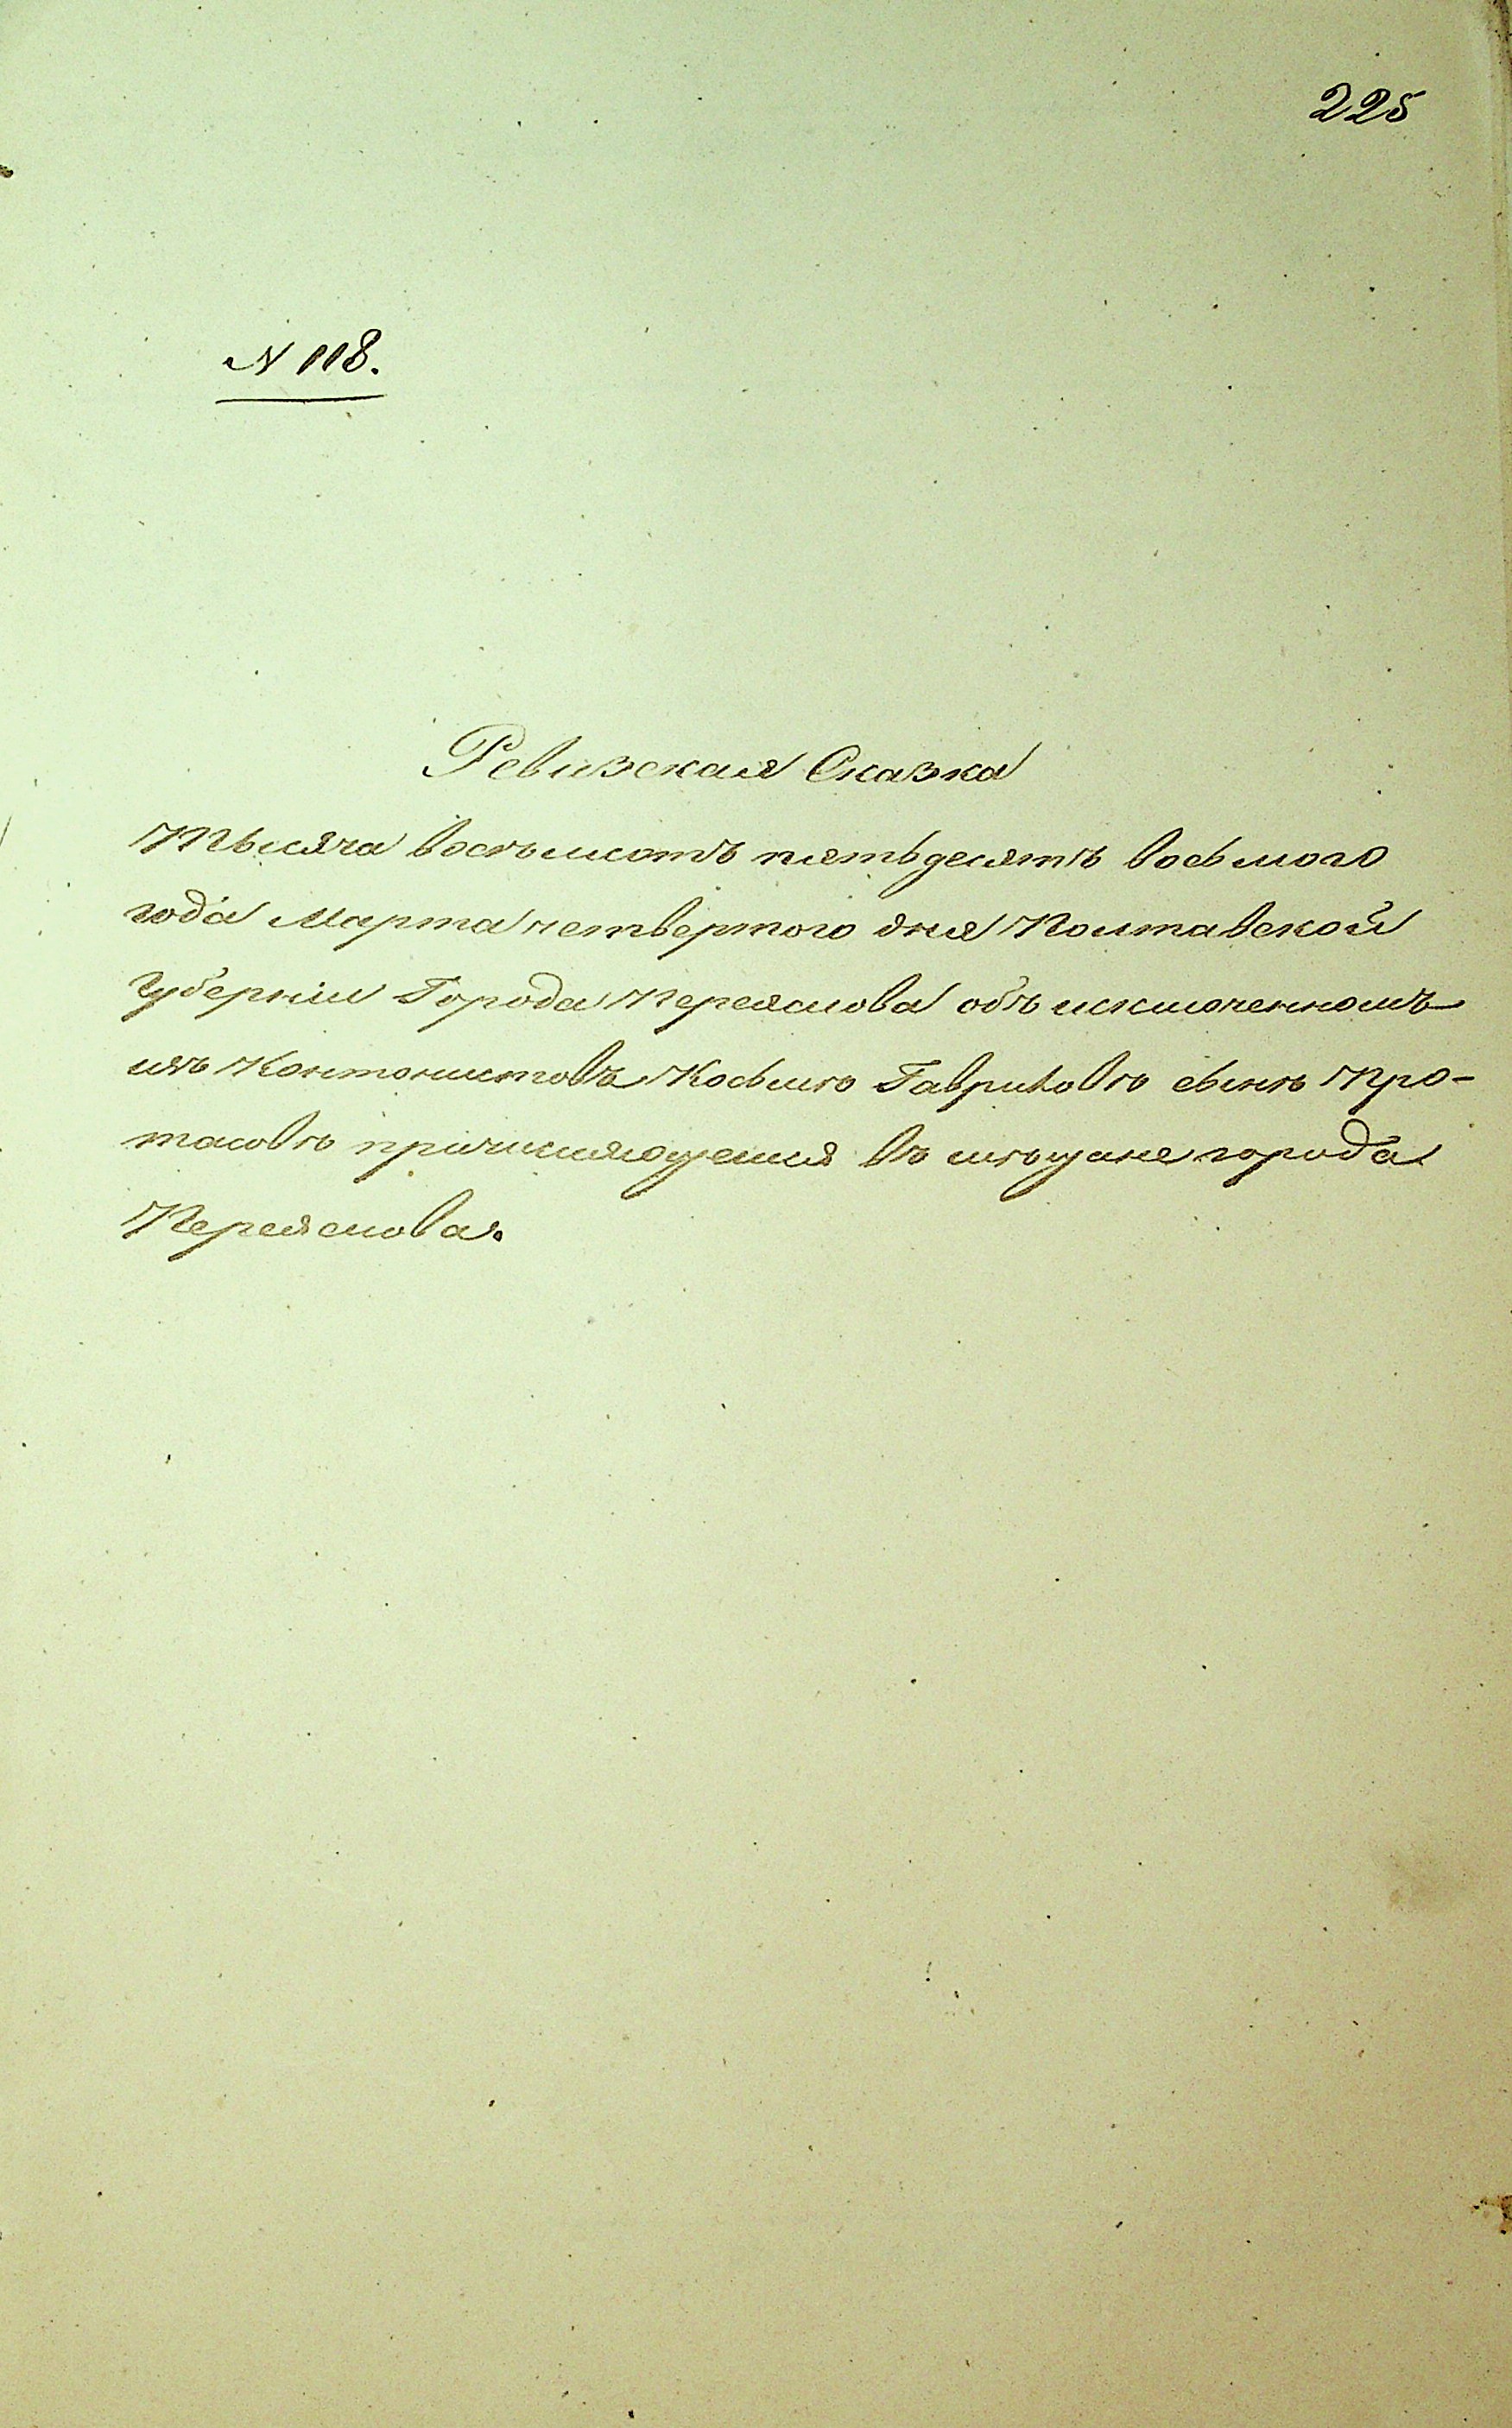 225
N 118.
Ревизская Сказка
Тысяча восъмсотъ пятьдесятъ восьмого
года Марта четвертого дня Полтавской
Губерніи Города Переяслова объ исключенномъ
изъ Кантонистовъ Косьмѣ Гавриловѣ сынѣ Про-
тасовѣ причисляющемся въ мѣщане города
Переяслова.